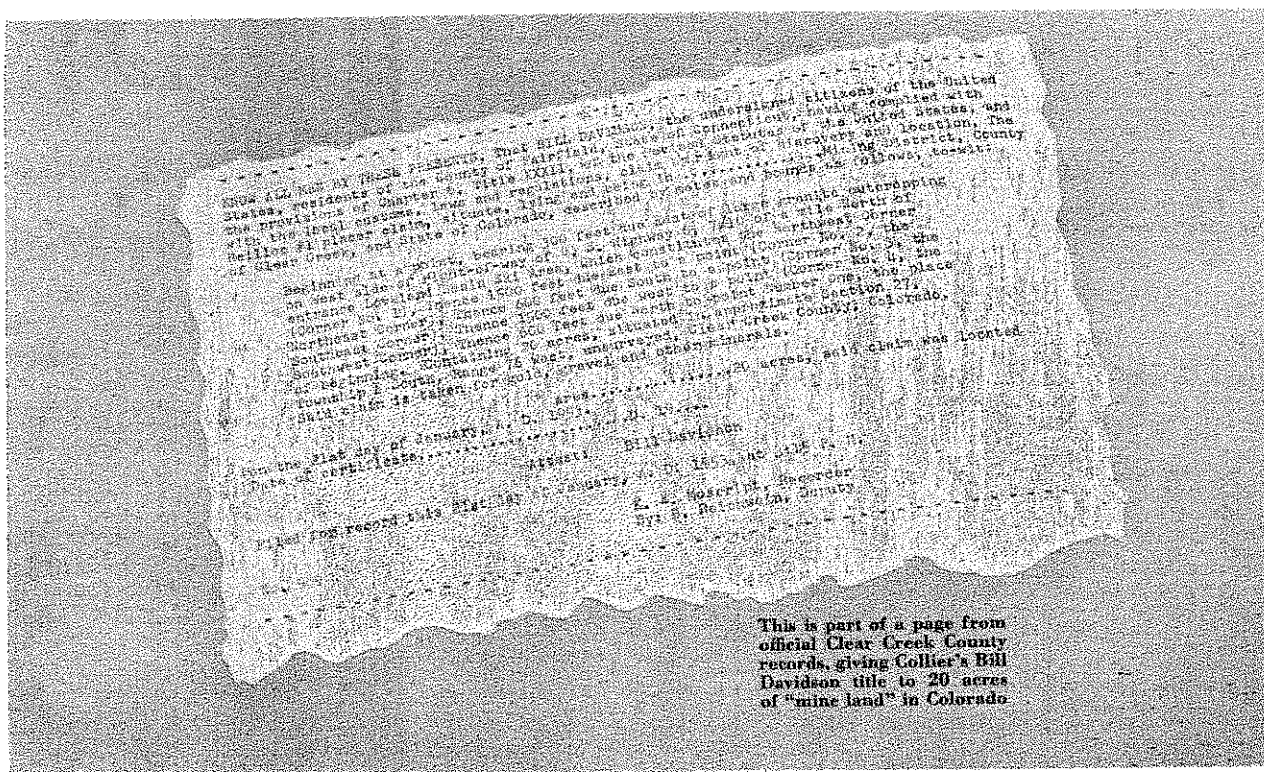 KNOW ALL MEN BY THESE PRESENTS, That BILL DAVIDSON, the undersigned citizens of the United
States, residents of the County of Fairfield, Connecticut, having complied with
the provisions of Chapter Title XXXII, of the Revised Statutes of the United States, and
with the local customs, laws and regulations, claim by right of discovery and location, The
#1 placer claim, situate, lying and being in.......... Mining District, County
of Clear Creek, and State of Colorado, described by metes and bounds as follows, to-wit:
Beginning at a point, bearing 300 feet due East of large granite outcropping
on West side of right-of-way of U. S. Highway 6, mile North of
entrance to Loveland Basin Ski Area, constituting the Northwest Corner
(Corner No. 1), thence feet due East to a point (Corner No. 2, the
Northeast Corner), thence 600 feet due South to a point (Corner No. 3, the
Southeast Corner), thence feet due West to a point (Corner No. 4, the
Southwest Corner), thence 600 feet due North to point number one, the place
of beginning. Containing 20 acres, situated in approximate Section 27,
Township South, Range 76 West, unsurveyed, Clear Creek County, Colorado.
Said claim is taken for gold, gravel and other minerals.
area..........20 acres, said claim was located
on the 31st day of January, A. D.
Date of certificate..........
Attest: Bill Davidson
Filed for record this 31st day of January, A. D. at P. M.
Recorder
By: Deputy
This is part of a page from
official Clear Creek County
records, giving Collier's Bill
Davidson title to 20 acres
of "mine land" in Colorado